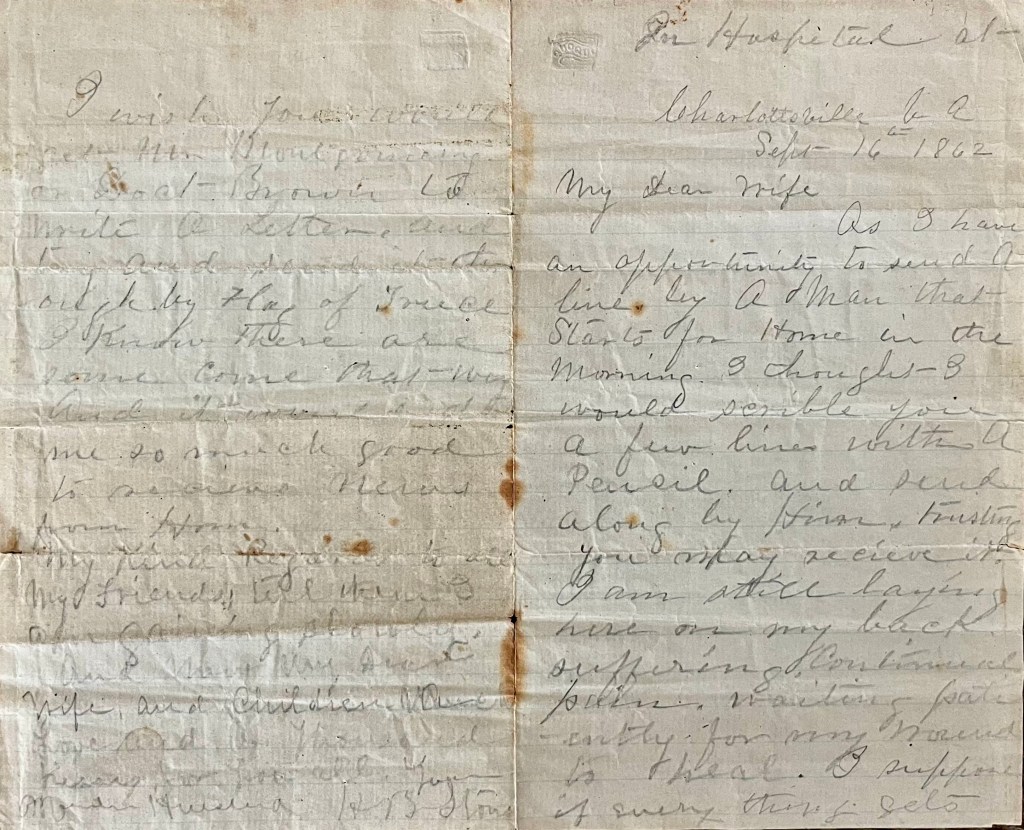 In Hospital at
Charlottsville Va
Sept 16th 1862
My Dear Wife
As I have
an opportunity to send A
line by A Man that
Starts for Home in the
Morning. I thought I
would scrible you
A few lines with A
Pencil. and send
along by Him, trusting
you may recieve it.
I am still laying
here on my back
suffering Continual
pain. waiting pati
ently for my Wound
to Heal. I suppose
if every thing gets
I wish you would
get Mr Montgomery
or Doct Brown to
write A Letter, and
try and send it thr
ough by Flag of Truce
I Know there are
some Come that way
And it would do
me so much good
to recieve News
from Home.
My Kind Regards to all
My Friends, tell them I
am gaining slowly.
And Now My Dear
Wife, and Children
Love and A Thousand
Kisses for you all. Your
Husband H B Stone